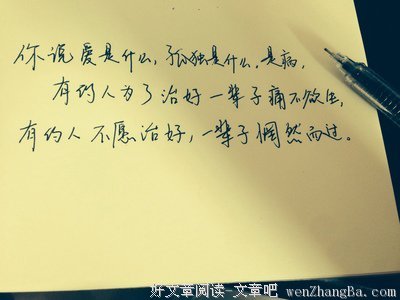 你说爱是什么，孤独是什么，是病，
有的人为了治好一辈子痛不欲生，
有的人不愿治好，一辈子惘然而过。
好文章阅读-文章吧 wenZhangBa.com